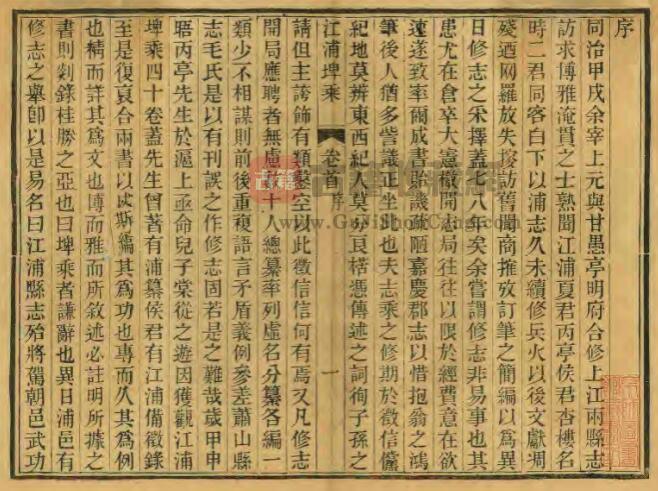 序
同治甲戌余宰上元與甘愚亭明府合修上江兩縣志
訪求博雅淹貫之士熟聞江浦夏君丙亭侯君杏樓名
時二君同客白下以浦志久未續修兵火以後文獻凋
殘迺网羅放失採訪舊聞商搉攷訂筆之簡編以爲異
日修志之宋擇蓋七八年矣余嘗謂修志非易事也其
患尤在倉卒大憲檄開志局往往以限於經費意在欲
速遂致率爾成書貽譏疏陋嘉慶郡志以惜抱翁之鴻
筆後人猶多訾議正坐此也夫志乘之修期於徵信儻
紀地莫辨東西紀人莫分亘楛憑傳述之詞徇子孫之
江浦埤乘 卷首 序 一
請但主誇飾有類鑿空以此徵信信何有焉又凡修志
開局應聘者無慮數十人總纂率列虛名分纂各編一
類少不相謀則前後重複語言矛盾義例參差蕭山縣
志毛氏是以有刊誤之作修志固若是之難哉歲甲申
晤丙亭先生於滬上亟命兒子棠從之遊因獲觀江浦
埤乘四十卷蓋先生曾著有浦纂侯君有江浦備徵錄
至是復裒合兩書以成斯編其爲功也專而久其爲例
也精而詳其爲文也博而雅而所敘述必註明所據之
書則剡錄桂勝之亞也曰埤乘者謙辭也異日浦邑有
修志之舉卽以是易名曰江浦縣志殆將駕朝邑武功
古籍
www.GuJiShuCang.com